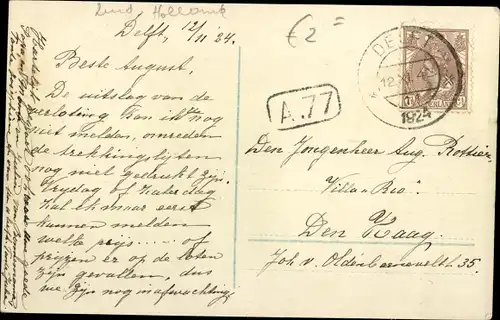 Zuid Holland
€2 =
Delft, 12/11 24.
Beste August,
De uitslag van de
verloting kan ik nog
niet melden, omreden
de trekkingslijsten
nog niet gedrukt zijn.
Vrijdag of Zaterdag
zal ik maar eerst
kunnen melden
welke prijs..... of
prijzen er op de loten
zijn gevallen, dus
we zijn nog in afwachting
A.77
DELFT
12 XI
1924
Den Jongenheer Aug.
"Villa Rio".
Den Haag.
Joh. v. Oldenbarneveltl. 35.